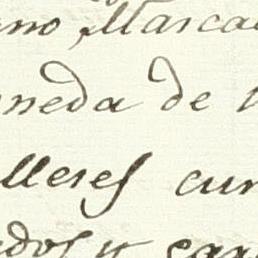 no Masca
neda de
lleres cur
dos y